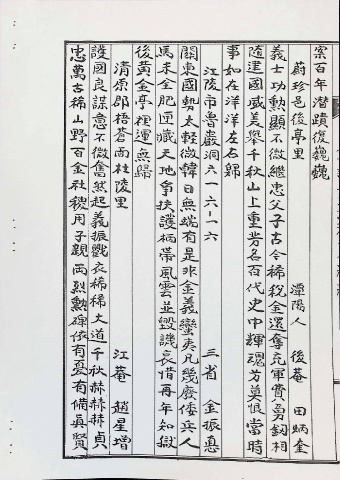 案百年潛蹟復巍巍
蔚珍邑後亭里　潭陽人　後菴　田炳奎
義士功勳顯不微繼忠父子古今稀稅金還奪充軍費勇釰相
隨建國威美擧千秋山上重芳名百代史中輝魂芳莫恨當時
事如在洋洋左右歸
江陵市魯巖洞六一六一一六　三省　金振惪
關東國勢太輕微韓日無端有是非金義蠻夷凡幾廢倭兵人
馬未全肥匝藏天地爭扶護栖帶風雲並毁譏哀惜再年知獄
後黃金亭裡運無歸
清原郡梧蒼面杜陵里　江菴　趙星增
護國良謨意不微奮然起義振戳衣稀稀大道千秋赫赫赫貞
忠萬古稀山野百金社稷用子親兩烈勳碟依有憂有備眞賢